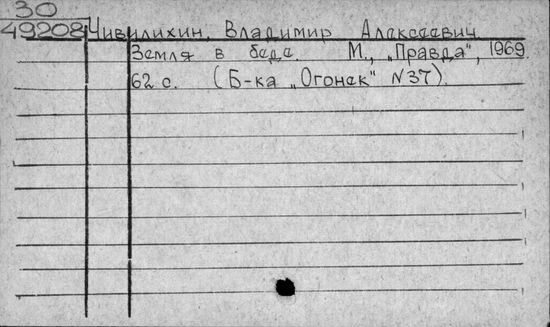 30
49208 Чивилихин, Владимир Алексеевич
Земля в беде. М., „Правда", 1969.
62 с. (Б-ка „Огонек" N37).